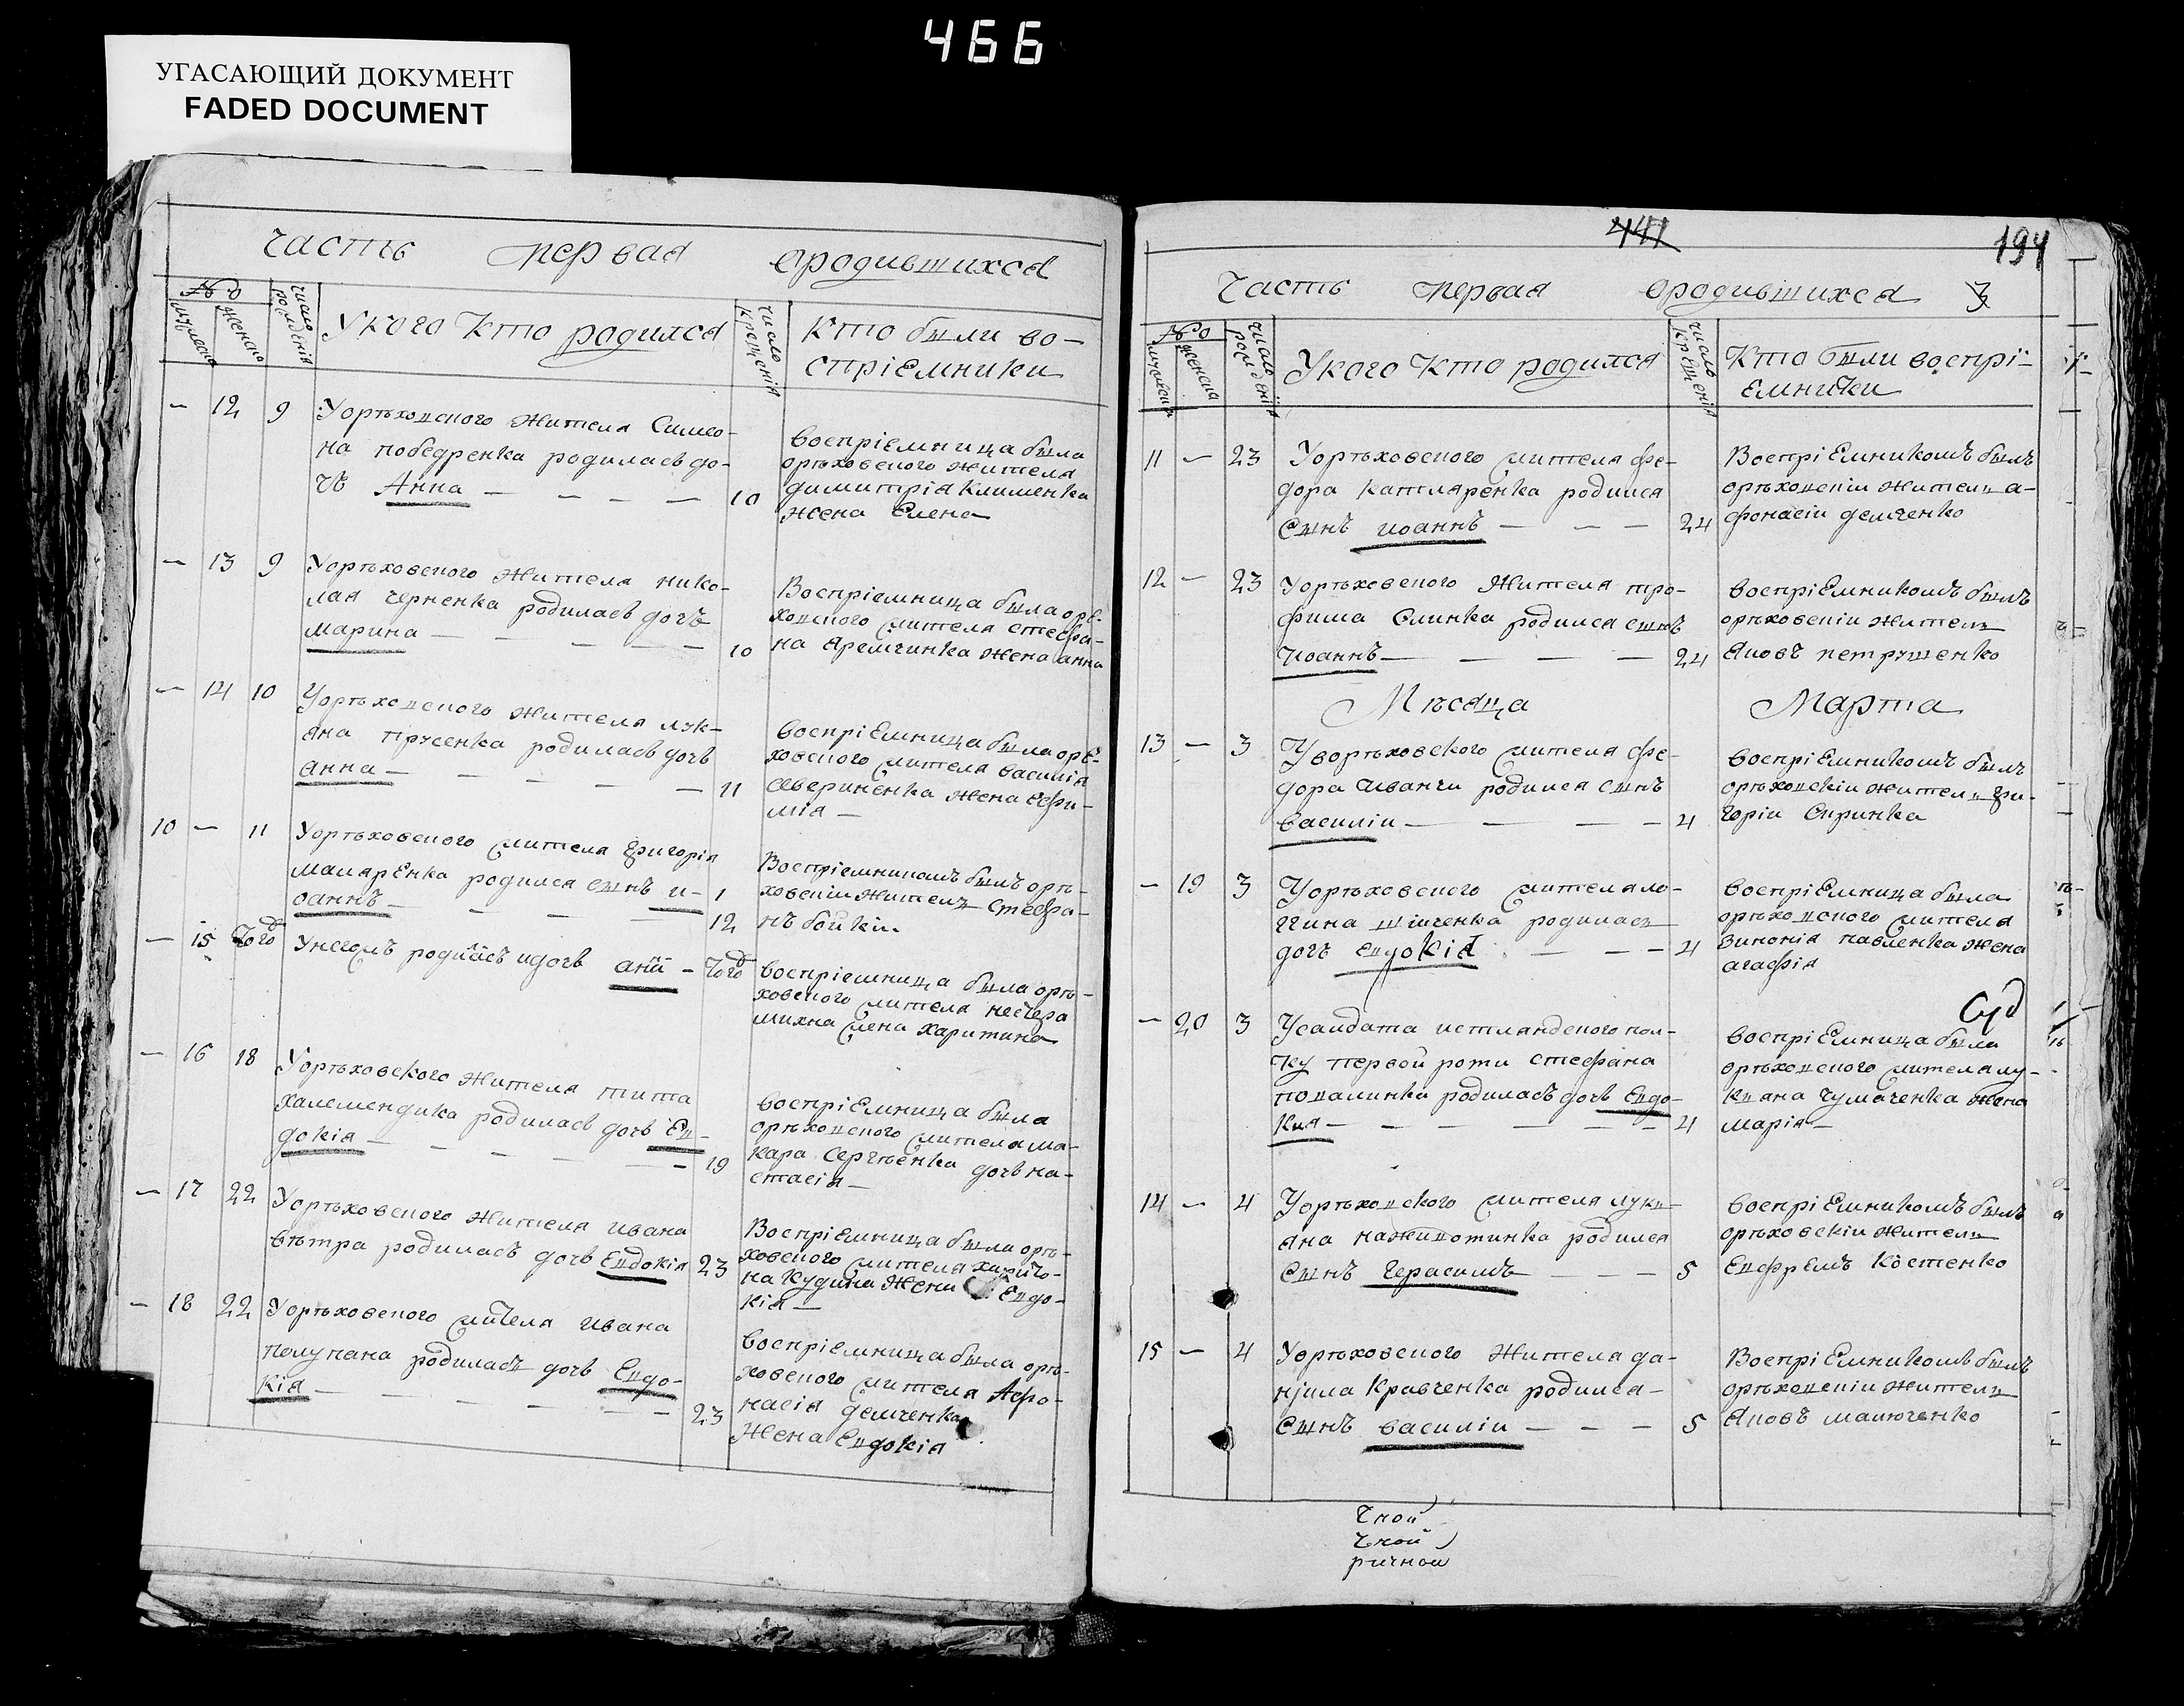 466
УГАСАЮЩИЙ ДОКУМЕНТ
FADED DOCUMENT
часть первая ородившихся
№
мужеска женска число рожденія У кого кто родился число крещенія кто были во-
спріемники
— 12 9 У орѣховского жителя Симео-
на победренка родилась до-
чъ Анна — — — — 10
воспріемница была
орѣховского жителя
димитрія клименка
жена Елена
— 13 9 У орѣховского жителя нико-
лая черненка родилась дочъ
марина — — — — 10
Воспріемница была орѣ-
ховского жителя стефа-
на яремчинка жена анна
— 14 10 У орѣховского жителя лук-
яна прусенка родилась дочъ
анна — — — — — 11
воспріемница была орѣ-
ховского жителя василія
авериненка жена ефи-
мія —
10 — 11 У орѣховского жителя григорія
маляренка родился сынъ и-
оаннъ — — — — 12
Воспріемникомъ былъ орѣ-
ховскіи житель стефа-
нъ бойкіи
— 15 того У негожъ родиласъ и дочъ анн — того
воспріемница была орѣ-
ховского жителя
жена харитина
— 16 18 У орѣховского жителя тита
халемендика родилась дочъ Ев-
докія — — — — — 19
воспріемница была
орѣховского жителя ма-
кара Сергѣенка дочъ на-
стасія —
— 17 22 У орѣховского жителя ивана
вѣтра родилась дочъ Евдокія 23
Воспріемница была орѣ-
ховского жителя
на кудина жена Евдо-
кія —
— 18 22 У орѣховского жителя ивана
полупана родилась дочъ Евдо-
кія — — — — 23
воспріемница была орѣ-
ховского жителя Афо-
насія демченка
жена Евдокія
441
194
Часть первая ородившихся
№
мужеска женска число рожденія У кого кто родился число крещенія Кто были воспрі-
емники
11 — 23 У орѣховского жителя фе-
дора катляренка родился
сынъ иоаннъ — — — 24
Воспріемникомъ былъ
орѣховскіи житель а-
фонасіи демченко
12 — 23 У орѣховского жителя тро-
фима Слинка родился сынъ
иоаннъ — — — — 24
воспріемникомъ былъ
орѣховскіи житель
яковъ петрушенко
Мѣсяца Марта
13 — 3 У ворѣховского жителя фе-
дора иванчи родился сынъ
василіи — — — — 4
воспріемникомъ былъ
орѣховскіи житель гри-
горіи Спринка
— 19 3 У орѣховского жителя ло-
гина родилась
дочъ евдокія — — — 4
воспріемница была
орѣховского жителя
зинонія павленка жена
агафія
— 20 3 У салдата истландского пол-
ку первой роти стефана
подалинка родилась дочъ Евдо-
кия — — — — — — 4
воспріемница была
орѣховского жителя лу-
кяна чумаченка жена
марія —
14 — 4 У орѣховского жителя лукв-
яна наживотинка родился
сынъ герасимъ — — 5
воспріемникомъ былъ
орѣховскіи житель
Ефремъ костенко
15 — 4 У орѣховского жителя да-
нјила кравченка родился —
сынъ василіи — — — 5
Воспріемникомъ былъ
орѣховскіи житель
яковъ малюченко
чной
чной
ричной